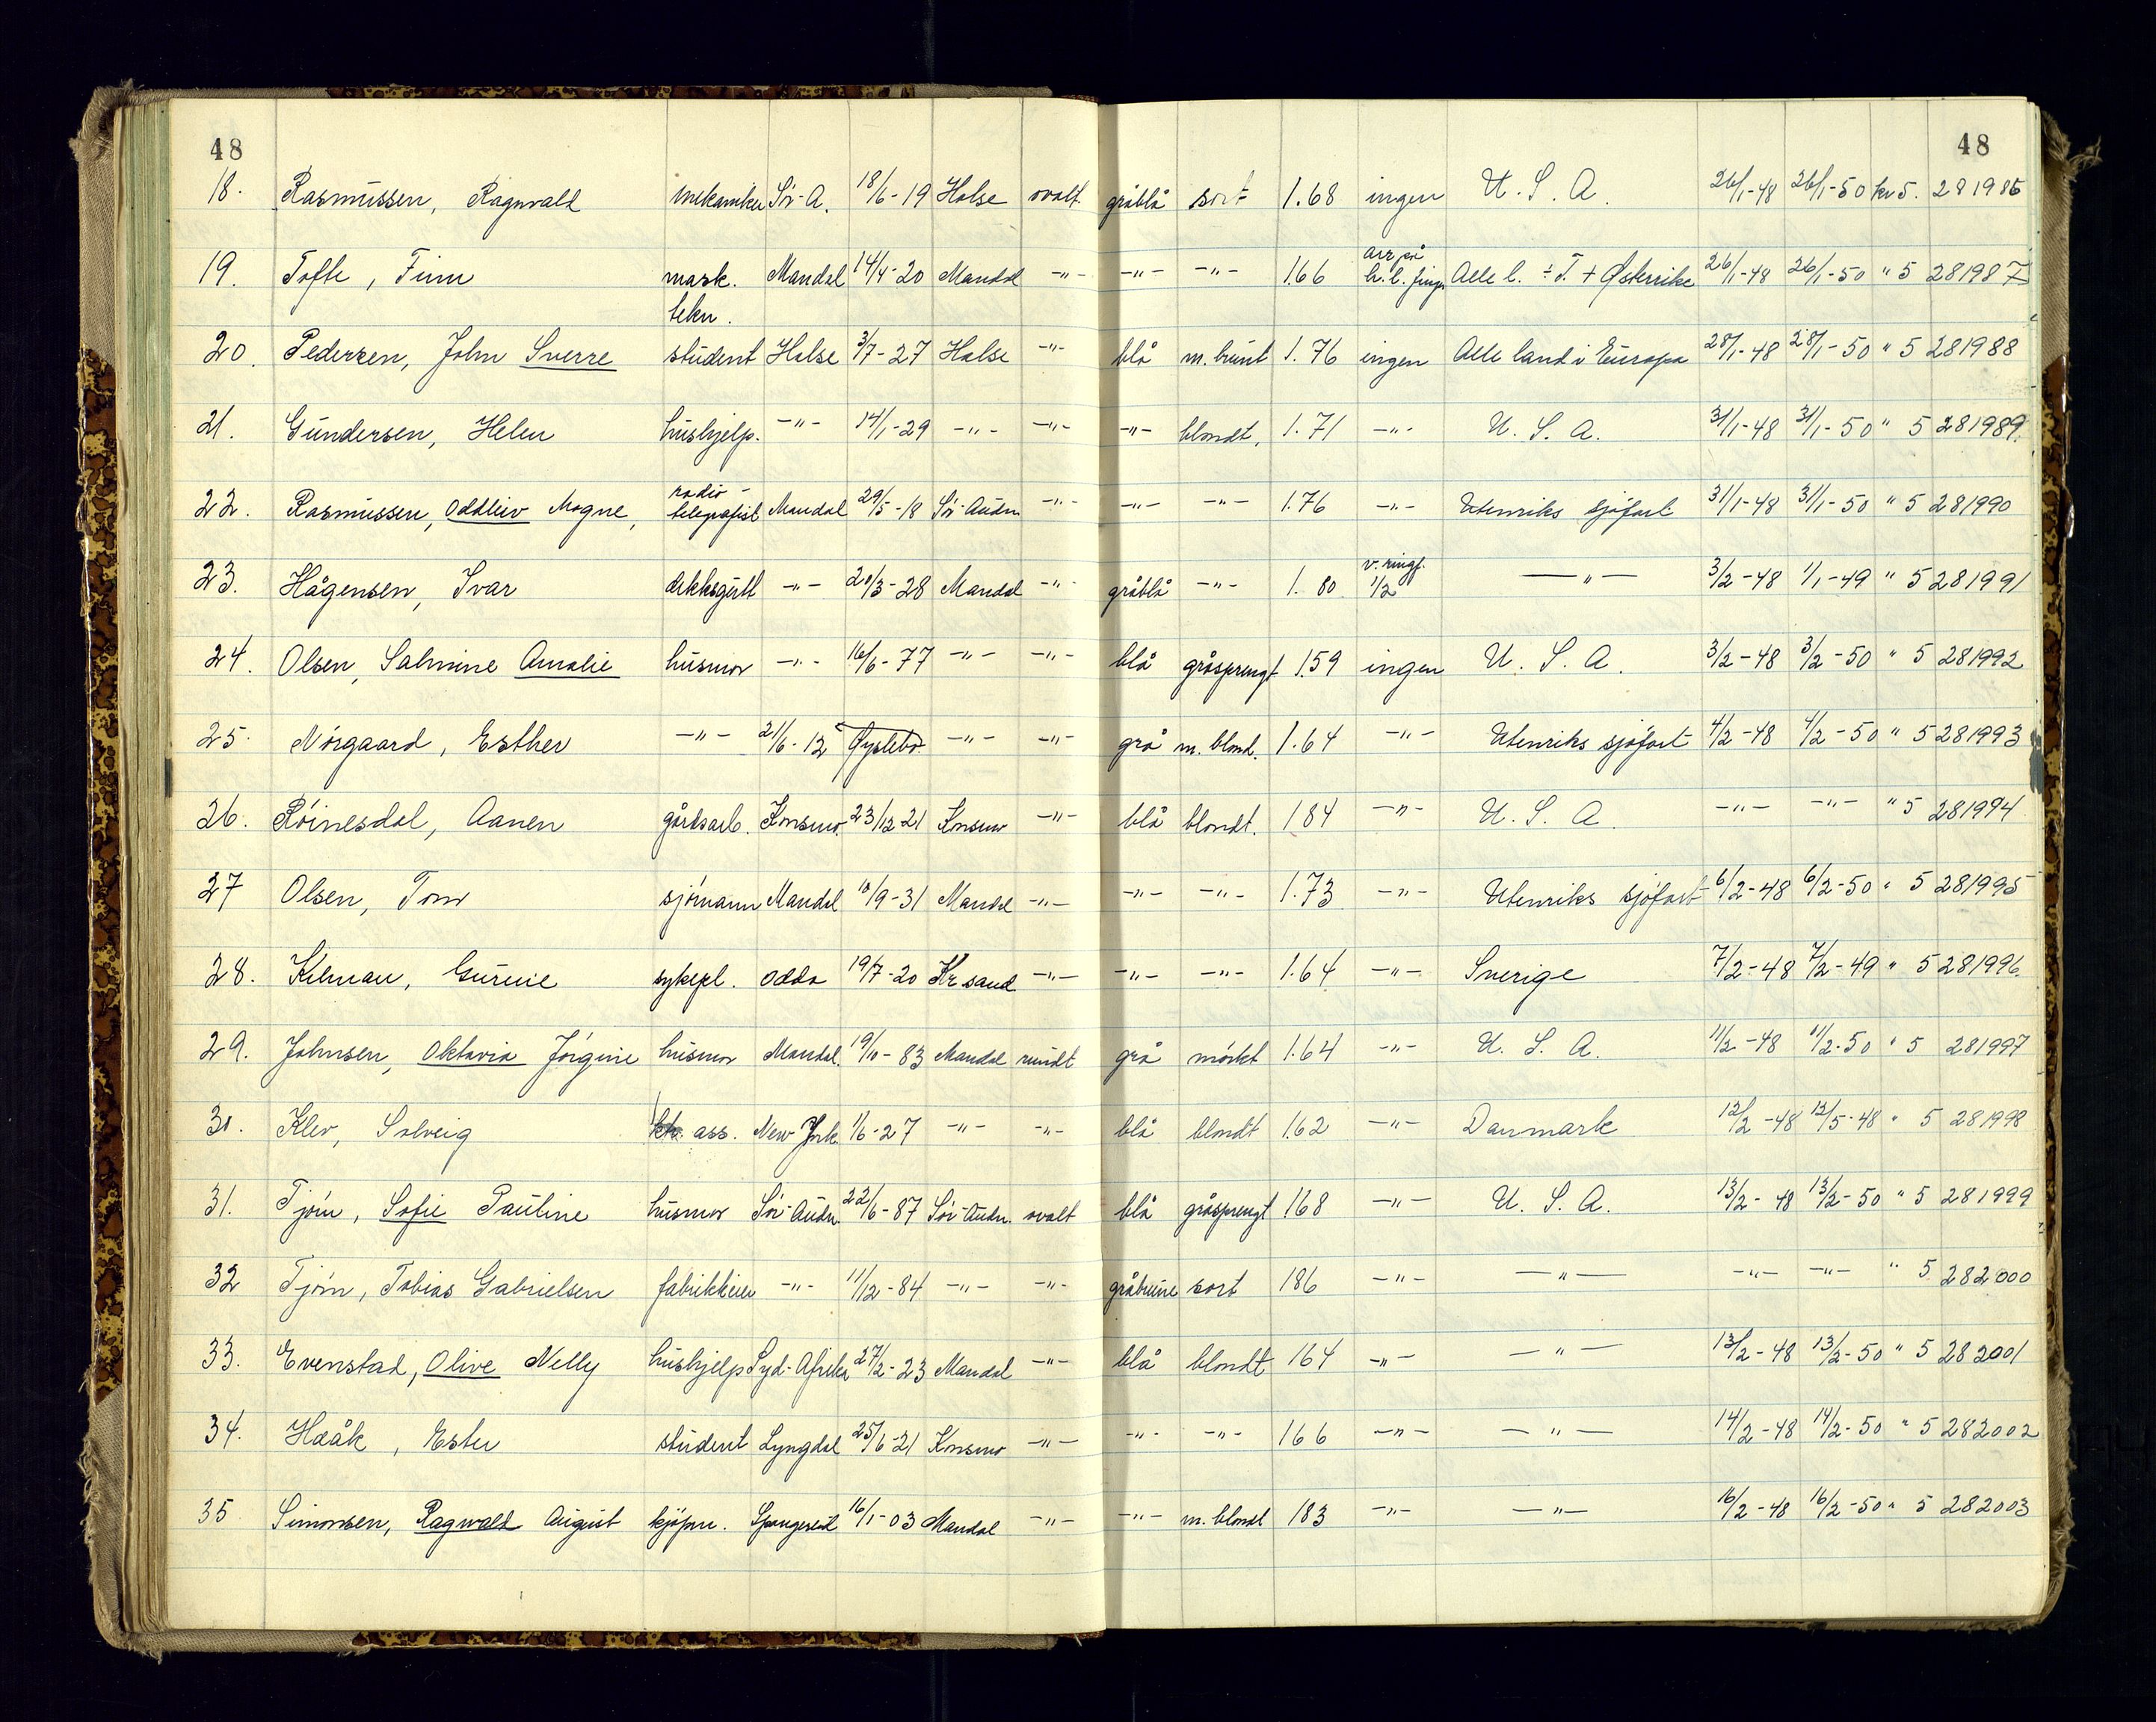 48 48
18. Rasmussen, Ragnvald mekaniker Sör-A. 18/6-19 Halse ovalt gråblå sort 1.68 ingen U.S.A. 26/1-48 26/1-50 kr 5. 281986
19. Tofte, Finn mask. tekn. Mandal 14/4-20 Mandal -"- -"- -"- 1.66 arr på h.l. finger Alle l. ÷ T. + Østerrike 26/1-48 26/1-50 " 5 281987
20. Pedersen, John Sverre student Halse 3/7-27 Halse -"- blå m. brunt 1.76 ingen Alle land i Europa 28/1-48 28/1-50 " 5 281988
21. Gundersen, Helen hushjelp. -"- 14/1-29 -"- -"- -"- blondt. 1.71 -"- U.S.A. 31/1-48 31/1-50 " 5 281989.
22. Rasmussen, Oddleiv Magne, radio-telegrafist Mandal 29/5-18 Sör-Audn -"- -"- -"- 1.76 -"- Utenriks sjöfart 31/1-48 31/1-50 " 5 281990
23. Hågensen, Ivar dekksgutt -"- 20/3-28 Mandal -"- gråblå -"- 1.80 v. ringf. 1/2 -"- 3/2-48 1/1-49 " 5 281991
24. Olsen, Salmine Amalie husmor -"- 16/6-77 -"- -"- blå gråsprengt 1.59 ingen U.S.A. 3/2-48 3/2-50 " 5 281992
25. Nörgaard, Esther -"- 21/6-12 Öyslebö -"- -"- grå m. blond. 1.64 -"- Utenriks sjöfart 4/2-48 4/2-50 " 5 281993
26. Röinesdal, Aanen gårdsarb. Konsmo 23/12 21 Konsmo -"- blå blondt. 184 -"- U.S.A. -"- -"- " 5 281994
27 Olsen, Tom sjömann Mandal 10/9-31 Mandal -"- -"- -"- 1.73 -"- Utenriks sjöfart 6/2-48 6/2-50 " 5 281995
28. Kilman, Gurine sykepl. Odda 19/7-20 Kr sand -"- -"- -"- 1.64 -"- Sverige 7/2-48 7/2-49 " 5 281996.
29. Johnsen, Oktavia Jörgine husmor Mandal. 19/10-83 Mandal rundt grå mörkt 1.64 -"- U.S.A. 11/2-48 11/2-50 " 5 281997
30. Klev, Solveig ktr. ass. New York 1/6-27 -"- -"- blå blondt 1.62 -"- Danmark 12/2-48 12/5-48 " 5 281998
31. Tjöm, Sofie Pauline husmor Sör-Audn. 22/6-87 Sör-Audn. ovalt blå gråsprengt 168 -"- U.S.A. 13/2-48 13/2-50 " 5 281999
32 Tjöm, Tobias Gabrielsen fabrikkeier -"- 11/12-84 -"- -"- gråbrune sort 186 -"- -"- -"- -"- " 5 282000
33. Evenstad, Olive Nelly hushjelp Syd-Afrika 27/2-23 Mandal -"- blå blondt 164 -"- -"- 13/2-48 13/2-50 " 5 282001
34. Haåk, Ester student Lyngdal 25/6-21 Konsmo -"- -"- -"- 166 -"- -"- 14/2-48 14/2-50 " 5 282002
35 Simonsen, Ragnvald August kjöpm. Spangereid 16/1-03 Mandal -"- -"- m. blondt 183 -"- -"- 16/2-48 16/2-50 " 5 282003